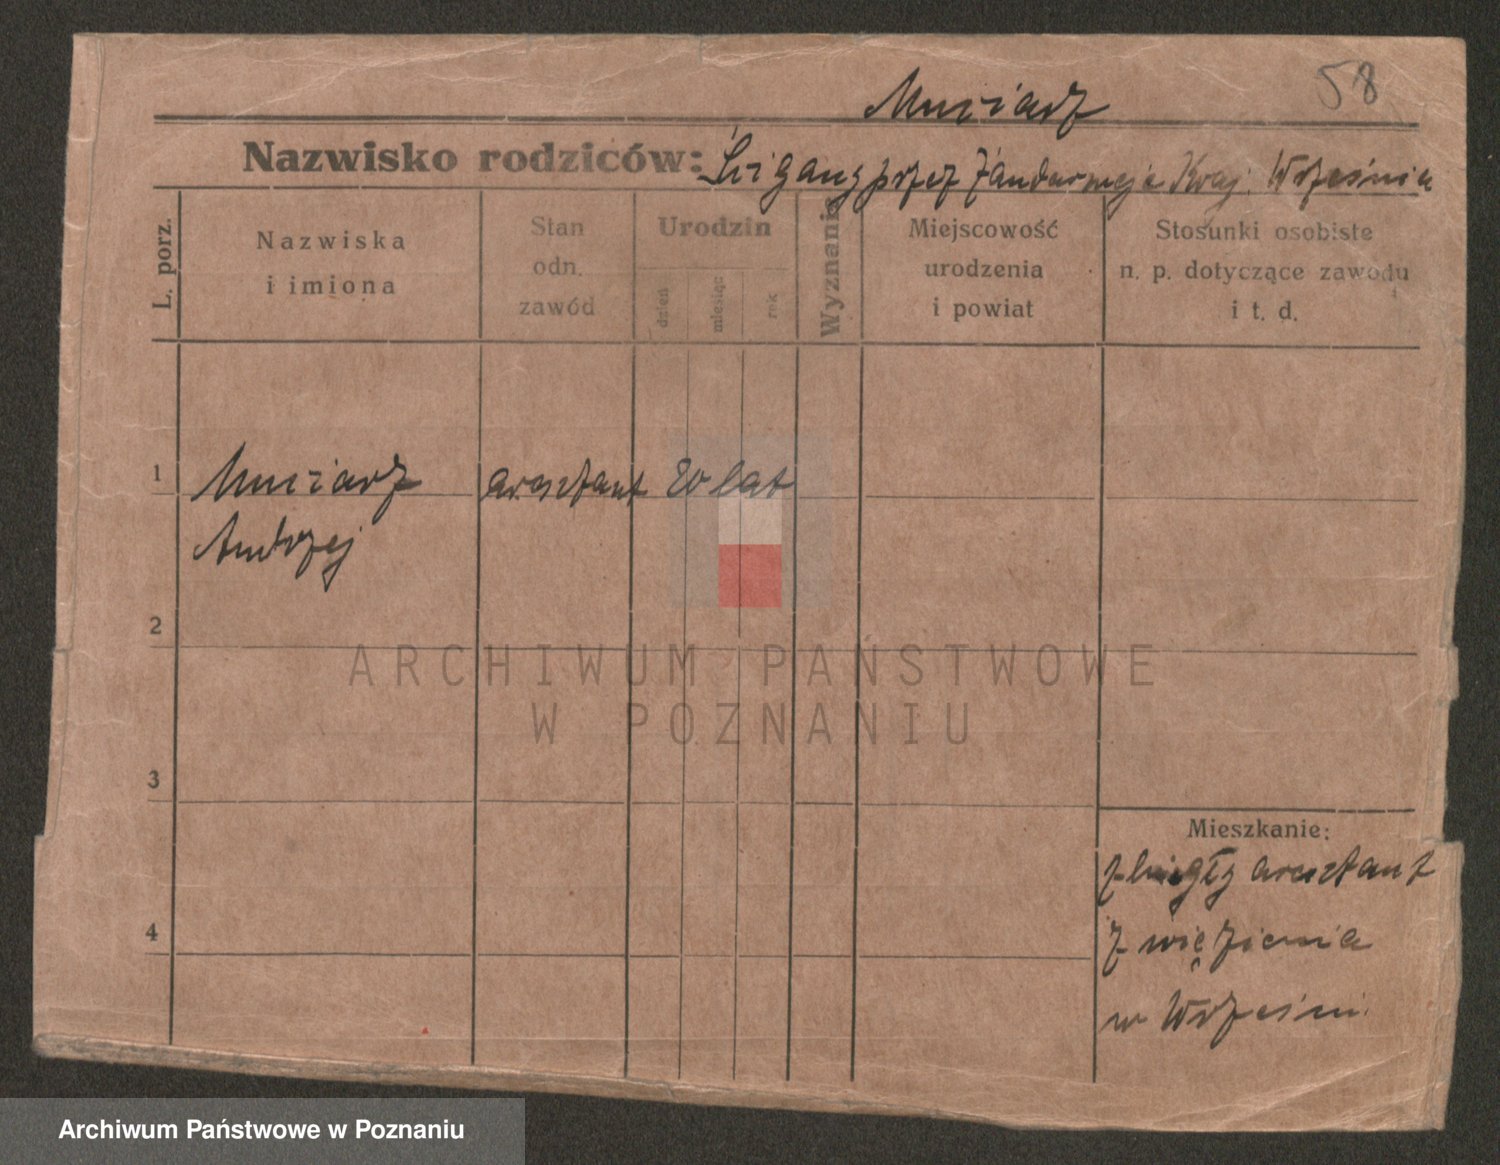 58
Muciarz
Nazwisko rodziców: Ścigany przez Żandarmeję Kraj. Września
L. porz.
Nazwiska
i imiona
Stan
odn.
zawód
Urodzin
dzień
miesiąc
rok
Wyznanie
Miejscowość
urodzenia
i powiat
Stosunki osobiste
n. p. dotyczące zawodu
i t. d.
1
Muciarz aresztant 20 lat
Andrzej
2
ARCHIWUM PAŃSTWOWE
W POZNANIU
3
Mieszkanie:
zbiegły aresztant
4
z więzienia
w Wrześni
Archiwum Państwowe w Poznaniu